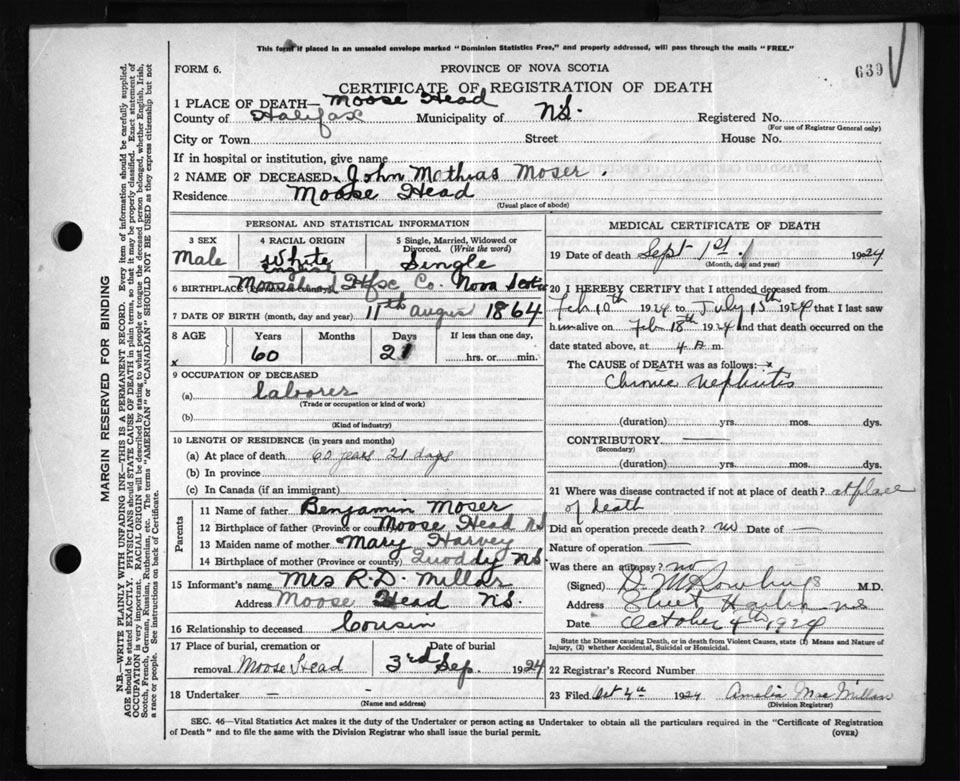 This form if placed in an unsealed envelope marked "Dominion Statistics Free," and properly addressed, will pass through the mails "FREE."
FORM 6.
PROVINCE OF NOVA SCOTIA
639
CERTIFICATE OF REGISTRATION OF DEATH
1 PLACE OF DEATH— Moose Head
County of Halifax Municipality of N.S. Registered No.
(For use of Registrar General only)
City or Town Street House No.
If in hospital or institution, give name
2 NAME OF DECEASED John Mathias Moser.
Residence Moose Head
(Usual place of abode)
PERSONAL AND STATISTICAL INFORMATION
3 SEX Male
4 RACIAL ORIGIN White English
5 Single, Married, Widowed or Divorced. (Write the word) Single
6 BIRTHPLACE Moosehead Hfx Co. Nova Scotia
7 DATE OF BIRTH (month, day and year) 11th august 1864
8 AGE Years 60 Months Days 21 If less than one day, hrs. or min.
9 OCCUPATION OF DECEASED
(a) laborer
(Trade or occupation or kind of work)
(b)
(Kind of industry)
10 LENGTH OF RESIDENCE (in years and months)
(a) At place of death 60 years 21 days
(b) In province
(c) In Canada (if an immigrant)
Parents
11 Name of father Benjamin Moser
12 Birthplace of father (Province or country) Moose Head NS
13 Maiden name of mother Mary Harvey
14 Birthplace of mother (Province or country) Quoddy N.S.
15 Informant's name Mrs R.D. Millar
Address Moose Head N.S.
16 Relationship to deceased Cousin
17 Place of burial, cremation or removal Moose Head
Date of burial 3rd Sep. 1924
18 Undertaker —
(Name and address)
MEDICAL CERTIFICATE OF DEATH
19 Date of death Sept 1st 1924
(Month, day and year)
20 I HEREBY CERTIFY that I attended deceased from
Feb 10th 1924 to July 15th 1924 that I last saw
him alive on Feb 18th 1924 and that death occurred on the
date stated above, at 4 A m.
The CAUSE of DEATH was as follows:—
Chronic Nephritis
(duration) yrs. mos. dys.
CONTRIBUTORY —
(Secondary)
(duration) yrs. mos. dys.
21 Where was disease contracted if not at place of death? at place
of death
Did an operation precede death? no Date of —
Nature of operation —
Was there an autopsy? no
(Signed) M.D.
Address N.S.
Date October 4th 1924
State the Disease causing Death, or in death from Violent Causes, state (1) Means and Nature of
Injury, (2) whether Accidental, Suicidal or Homicidal.
22 Registrar's Record Number
23 Filed Oct 4th 1924 Amelia MacMillan
(Division Registrar)
SEC. 46—Vital Statistics Act makes it the duty of the Undertaker or person acting as Undertaker to obtain all the particulars required in the "Certificate of Registration
of Death" and to file the same with the Division Registrar who shall issue the burial permit.
(OVER)
MARGIN RESERVED FOR BINDING
N.B.—WRITE PLAINLY WITH UNFADING INK—THIS IS A PERMANENT RECORD. Every item of information should be carefully supplied.
AGE should be stated EXACTLY. PHYSICIANS should STATE CAUSE OF DEATH in plain terms, so that it may be properly classified. Exact statement of
OCCUPATION is very important. RACIAL ORIGIN will be described by stating to what people or tongue the deceased person belonged, whether English, Irish,
Scotch, French, German, Russian, Ruthenian, etc. The terms "AMERICAN" or "CANADIAN" SHOULD NOT BE USED as they express citizenship but not
a race or people. See instructions on back of Certificate.